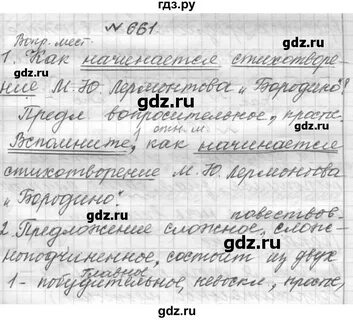 gdz.ru
№ 661.
Вопр. мест.
1. Как начинается стихотворе-
ние М. Ю. Лермонтова „Бородино"?
Предл вопросительное, простое.
относ. м.
Вспомните, как начинается
стихотворение М. Ю. Лермонтова
„Бородино".
повествов-
2. Предложение сложное, слож-
ноподчиненное, состоит из двух
главное
1- побудительное, невоскл., простое,